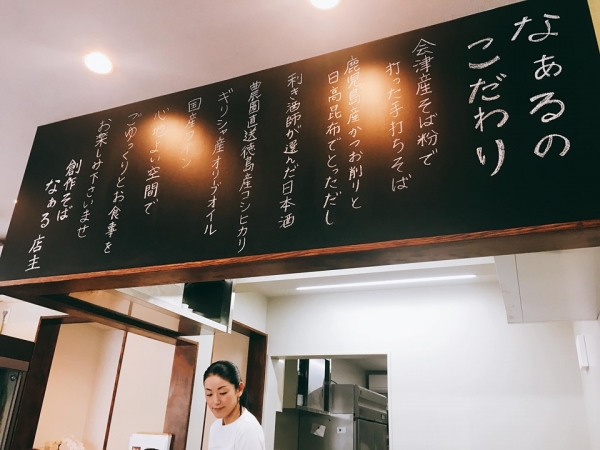 なぁるの
こだわり
会津産そば粉で
打った手打ちそば
鹿児島産かつお削りと
日高昆布でとっただし
利き酒師が選んだ日本酒
農園直送徳島産コシヒカリ
ギリシャ産オリーブオイル
国産ワイン
心地よい空間で
ごゆっくりとお食事を
お楽しみ下さいませ
創作そば
なぁる店主